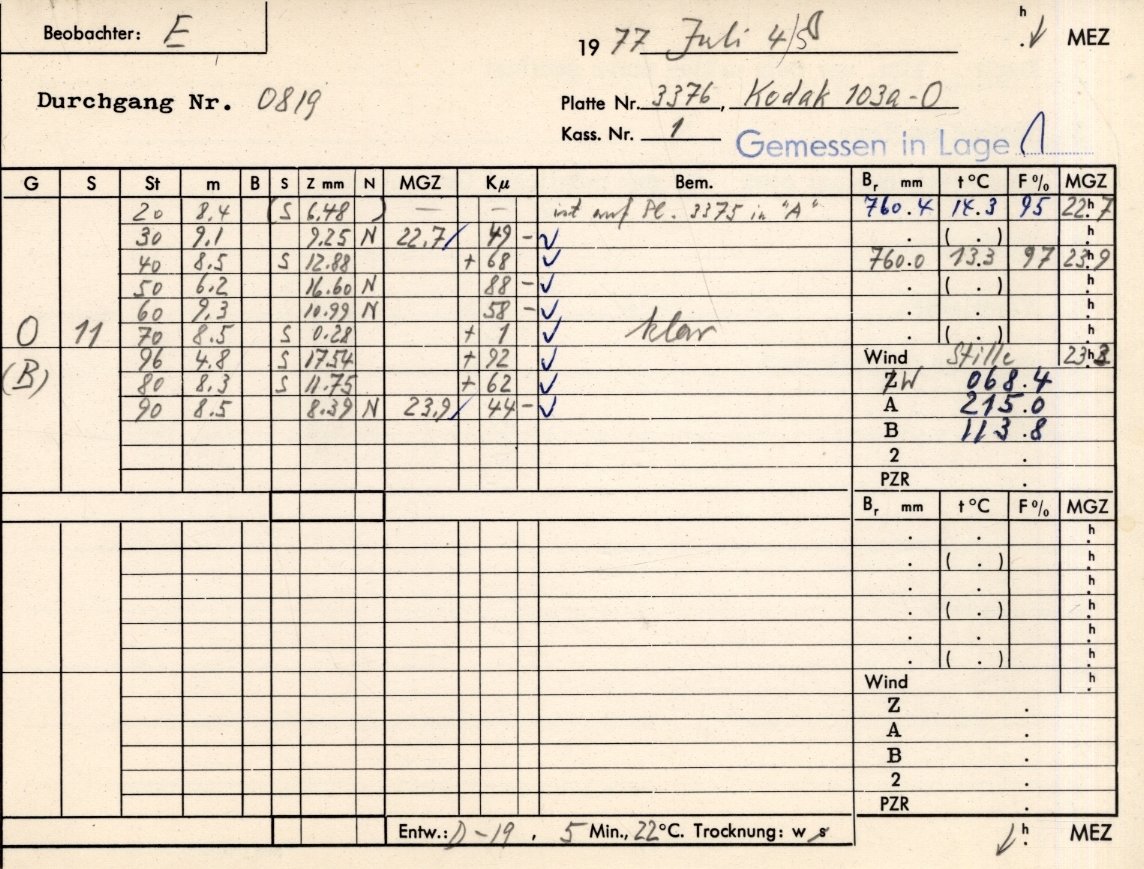 Beobachter: E
1977 Juli 4/5
h . MEZ
Durchgang Nr. 0819
Platte Nr. 3376, Kodak 103a-O
Kass. Nr. 1
Gemessen in Lage 1
G S St m B S Z mm N MGZ Kμ Bem. Br mm t°C F% MGZ
20 8.4 (S 6.48 ) — — ist auf Pl. 3375 in "A" 760.4 14.3 95 22h.7
30 9.1 9.25 N 22.7/ 49 - ✓ . ( . ) h.
40 8.5 S 12.88 + 68 ✓ 760.0 13.3 97 23h.9
50 6.2 16.60 N 88 - ✓ . ( . ) h.
60 9.3 10.99 N 58 - ✓ . . h.
O 11 70 8.5 S 0.28 + 1 ✓ klar . ( . ) h.
96 4.8 S 17.54 + 92 ✓ Wind Stille 23h.3
(B) 80 8.3 S 11.75 + 62 ✓ ZW 068.4
90 8.5 8.39 N 23.9/ 44 - ✓ A 215.0
B 113.8
2 .
PZR .
Br mm t°C F% MGZ
. . h.
. ( . ) h.
. . h.
. ( . ) h.
. . h.
. ( . ) h.
Wind h.
Z .
A .
B .
2 .
PZR .
Entw.: D-19, 5 Min., 22°C. Trocknung: w s
h. MEZ